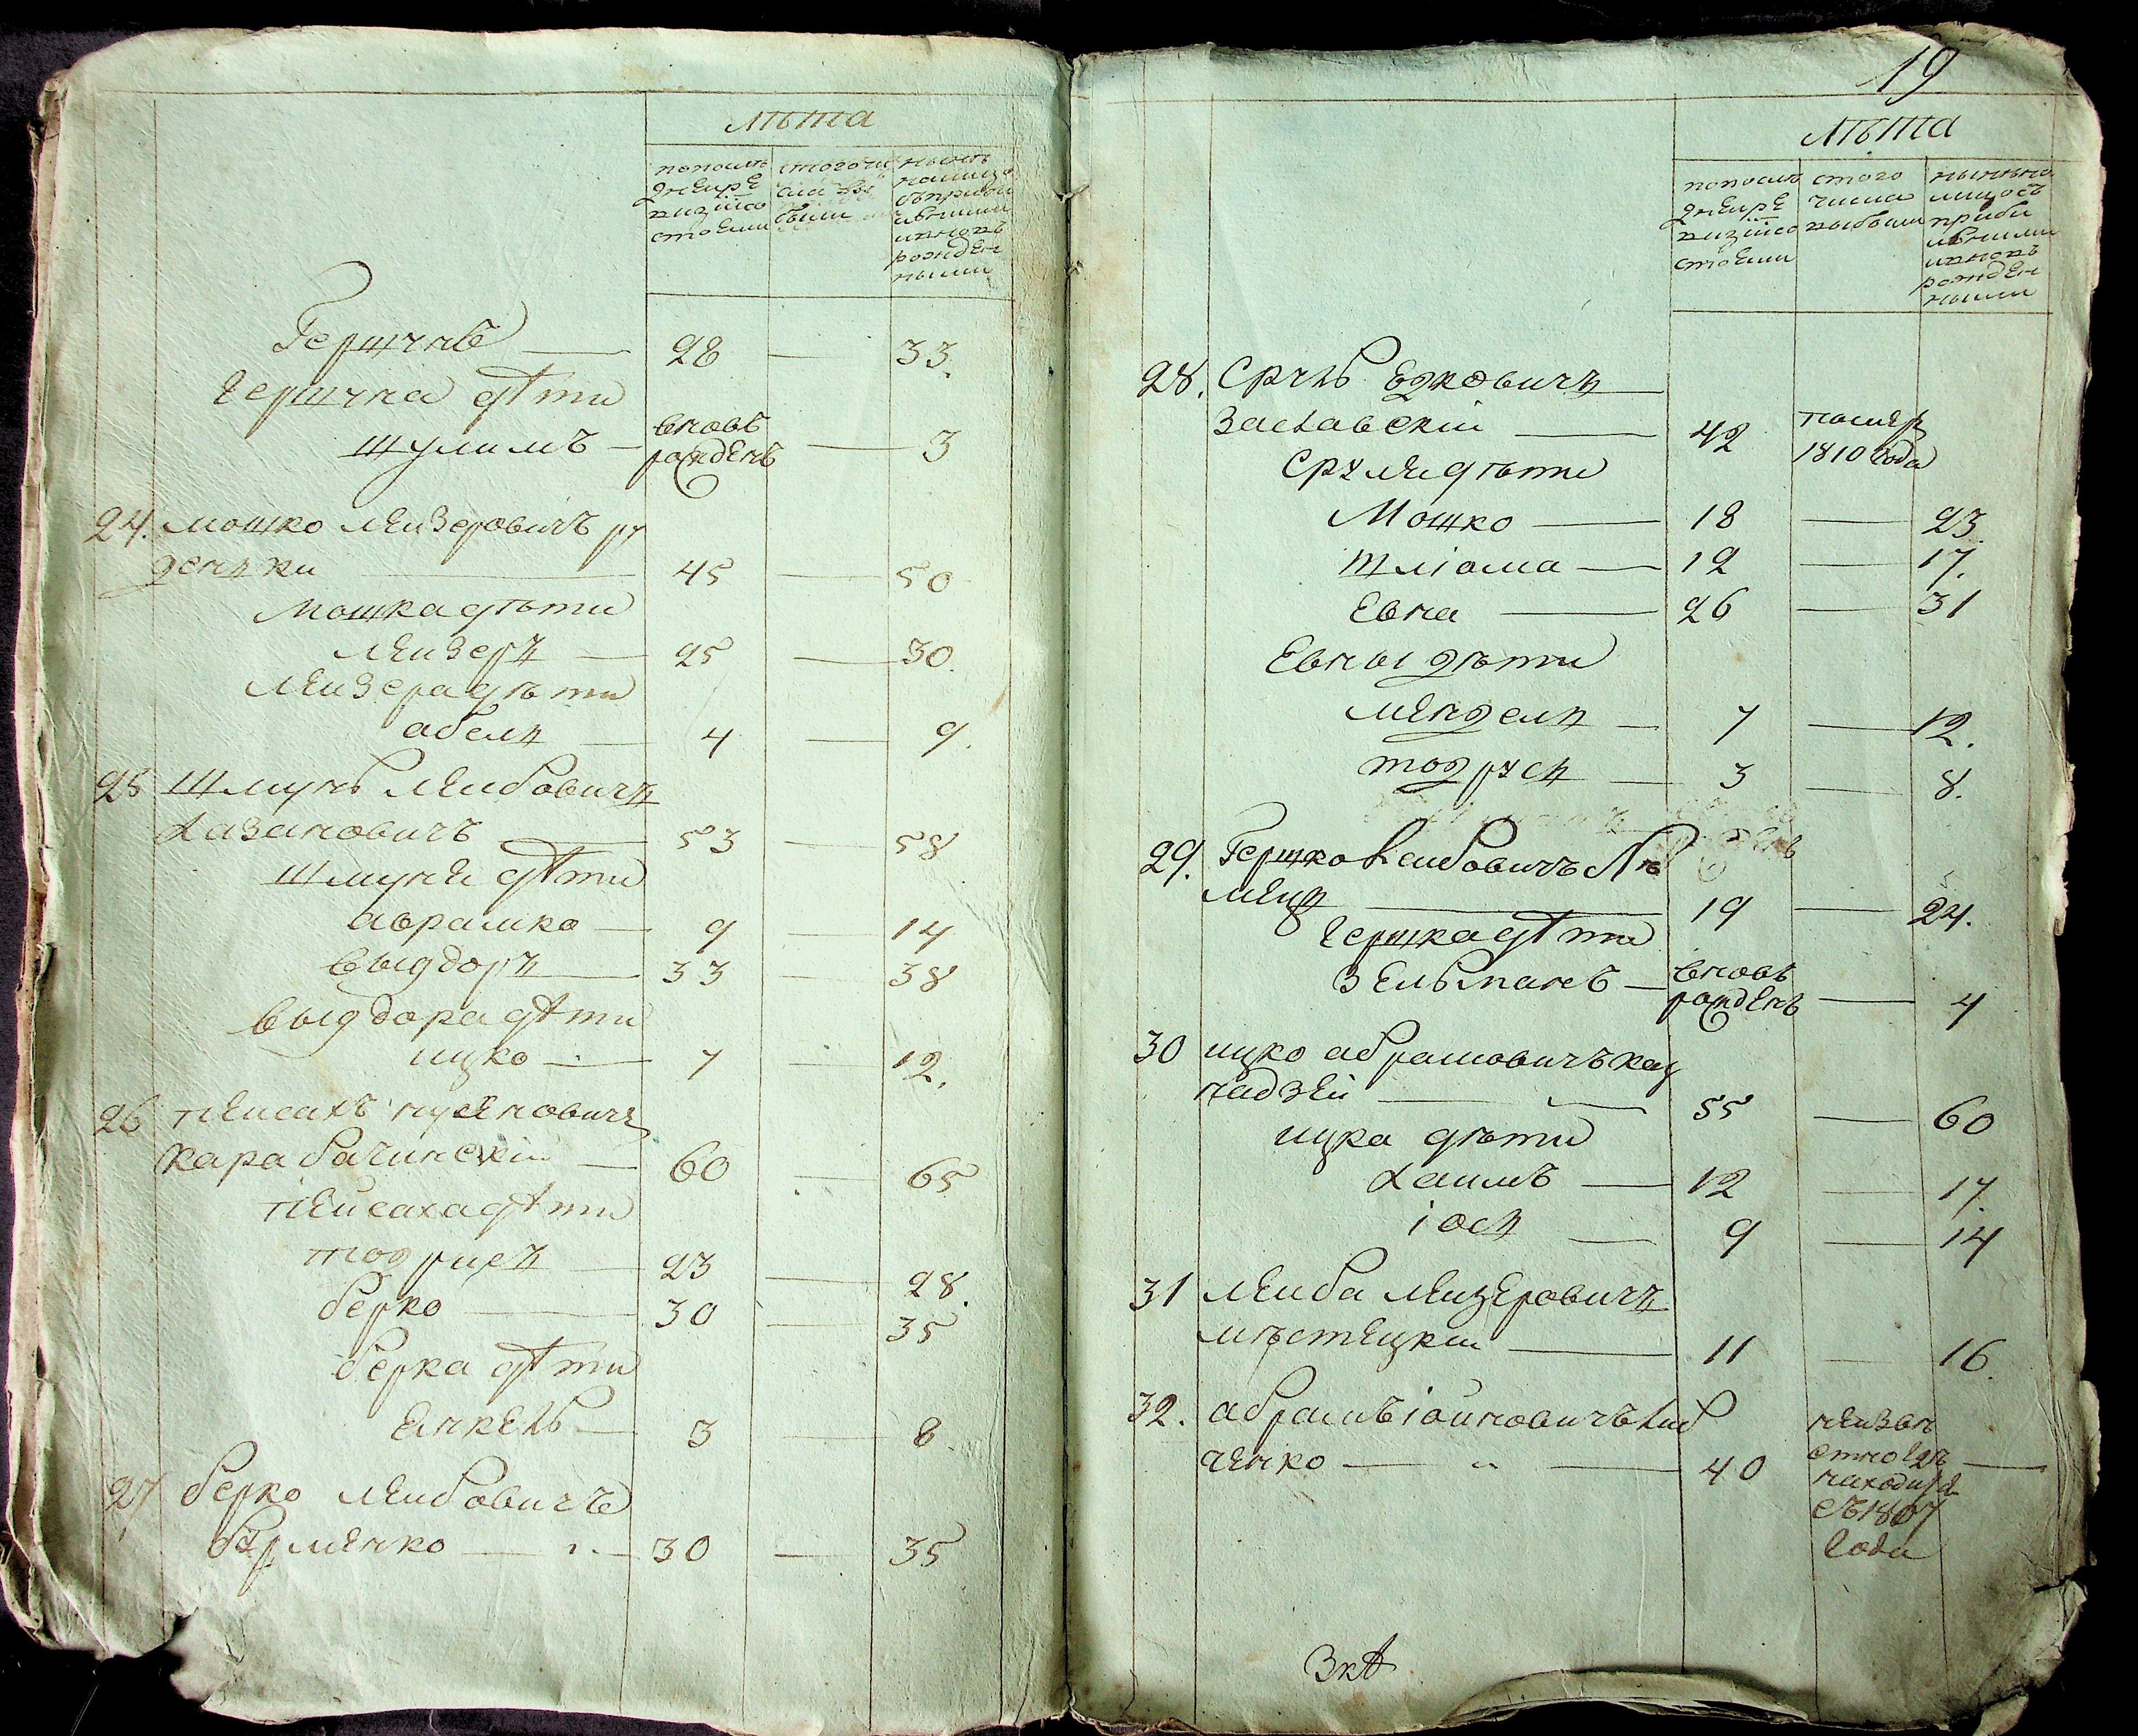 лѣта
попослѣ
дней ре
визіи со
стояли
стого чи
сла вы
были
нынѣ
налицо
съ прибы
лвшими
и вновь
рожден
ными
Гершунъ — 28 — 33.
Гершуна дѣти
Шулимъ — вновь рожденъ — 3
24. Мошко Лейзеровичъ ру
денки — 45 — 50
Мошка дѣти
Лейзеръ — 25 — 30.
Лейзера дѣти
абель — 4 — 9.
25 Шмуль Лейбовичъ
Хазановичъ — 53 — 58
Шмуля дѣти
аврамко — 9 — 14
Выгдоръ — 33 — 38
Выгдора дѣти
ицко — 7 — 12.
26 Пейсахъ Нусеновичъ
Карабачинскій — 60 — 65
Пейсаха дѣти
Тодрисъ — 23 — 28.
берко — 30 — 35
берка дѣти
Янкель — 3 — 8
27 берко Лейбовичъ
— 30 — 35
19
лѣта
попослѣ
дней ре
визіи со
стояли
стого
числа
выбыли
нынѣ на
лицо съ
прибы
лвшими
и вновь
рожден
ными
28. Сруль Ецковичъ
Заславскій — 42 померъ 1810 года
Сруля дѣти
Мошко — 18 — 23.
Шліома — 12 — 17.
Евна — 26 — 31
Евны дѣти
Мендель — 7 — 12.
Тодрусъ — 3 — 8.
29. Гершко Лейбовичъ
— 19 — 24.
Гершка дѣти
Зельманъ — вновь рожденъ — 4
30 ицко абрамовичъ
— 55 — 60
ицка дѣти
Хаимъ — 12 — 17.
іось — 9 — 14
31 Лейба Лейзеровичъ
Мѣстецкій — 11 — 16.
32. абрамъ іойновичъ Либ
ченко — 40 неизвѣстно гдѣ находится съ 1807 года —